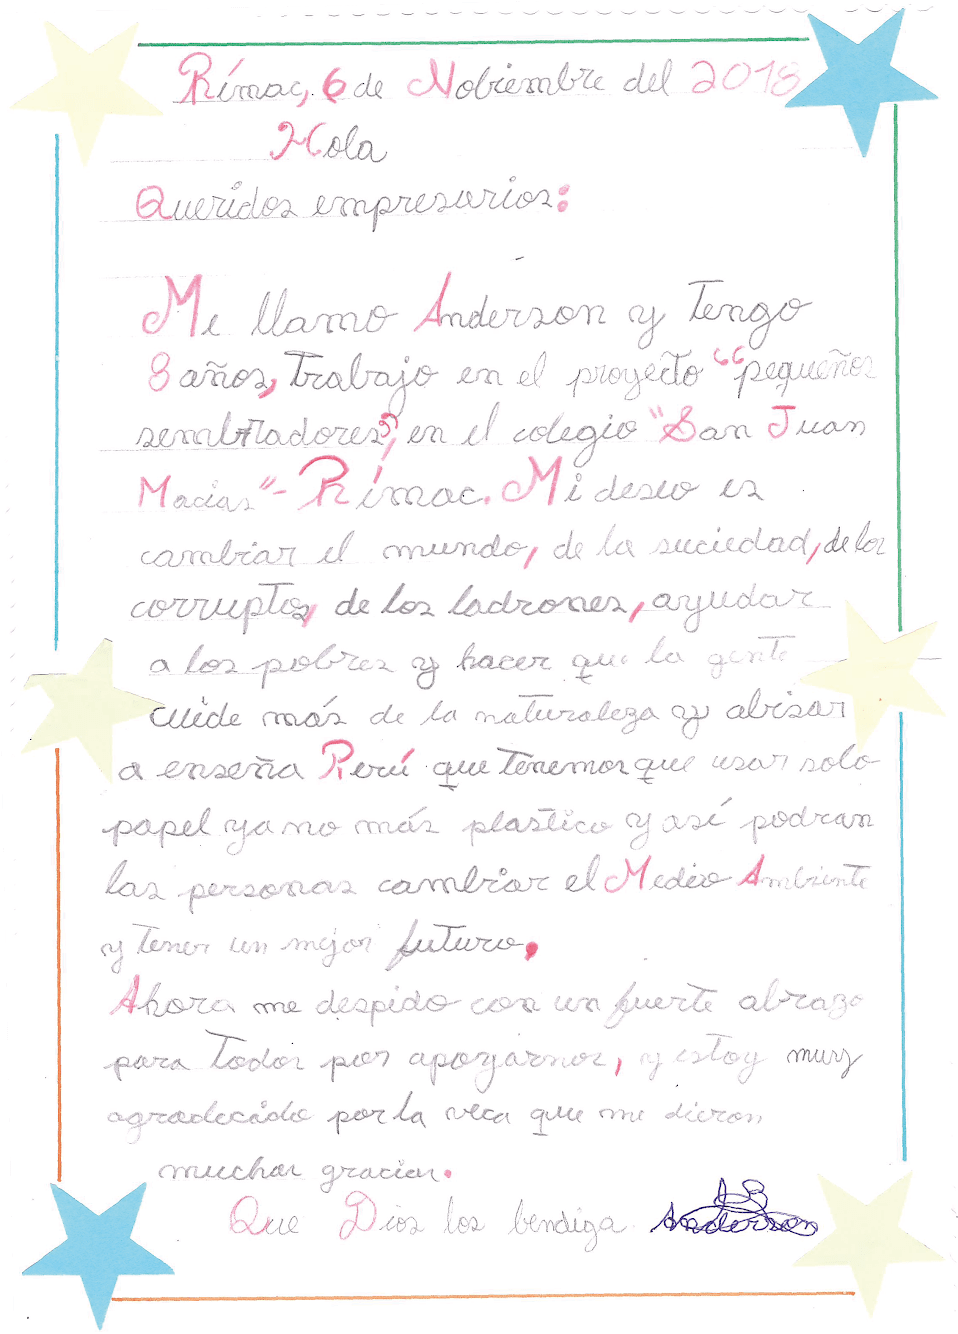 Rímac, 6 de Nobiembre del 2018
Hola
Queridos empresarios:
Me llamo Anderson y Tengo
8 años, Trabajo en el proyecto "pequeños
sembradores", en el colegio "San Juan
Macias" - Rímac. Mi deseo es
cambiar el mundo, de la suciedad, de los
corruptos, de los ladrones, ayudar
a los pobres y hacer que la gente
cuide más de la naturaleza y abisar
a enseña Perú que tenemos que usar solo
papel ya no más plastico y así podran
las personas cambiar el Medio Ambiente
y tener un mejor futuro.
Ahora me despido con un fuerte abrazo
para Todos por apoyarnos, y estoy muy
agradecido por la veca que me dieron
muchas gracias.
Que Dios los bendiga Anderson